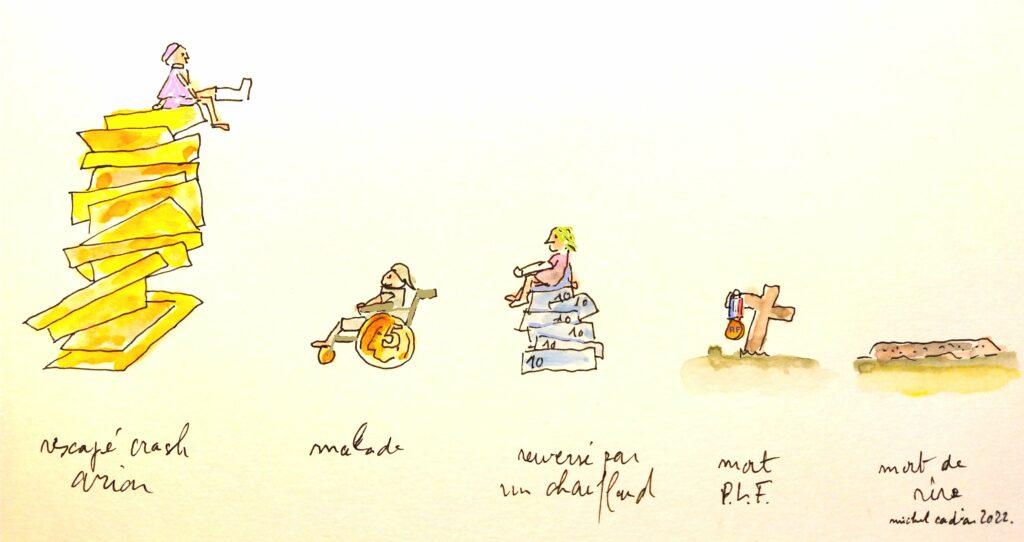 5
10
10
10
10
10
10
RF
rescapé crash
avion
malade
renversé par
un chauffard
mort
P.L.F.
mort de
rire
michel 2022.